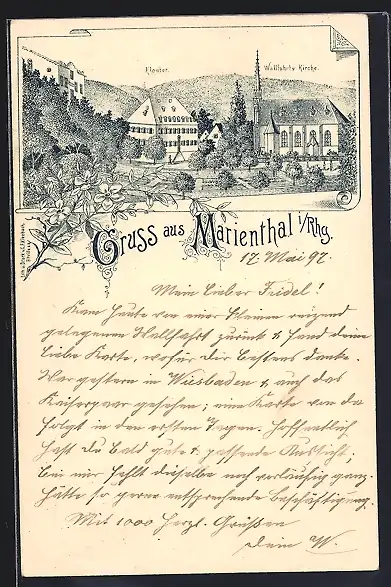 Kloster.
Wallfahrts Kirche.
Gruss aus Marienthal i/Rhg.
17. Mai 97.
Mein lieber Fridel!
Kam heute von einer kleinen reizend
gelegenen Wallfahrt zurück & fand deine
liebe Karte, wofür dir bestens danke.
War gestern in Wiesbaden & auch das
Kaiserpaar gesehen; eine Karte von da
folgt in den ersten Tagen. Hoffentlich
hast du bald gute & passende Aussicht;
bei mir fehlt dieselbe noch vorläufig ganz.
Hätte so gerne entsprechende Beschäftigung.
Mit 1000 herzl. Grüßen
dein W.